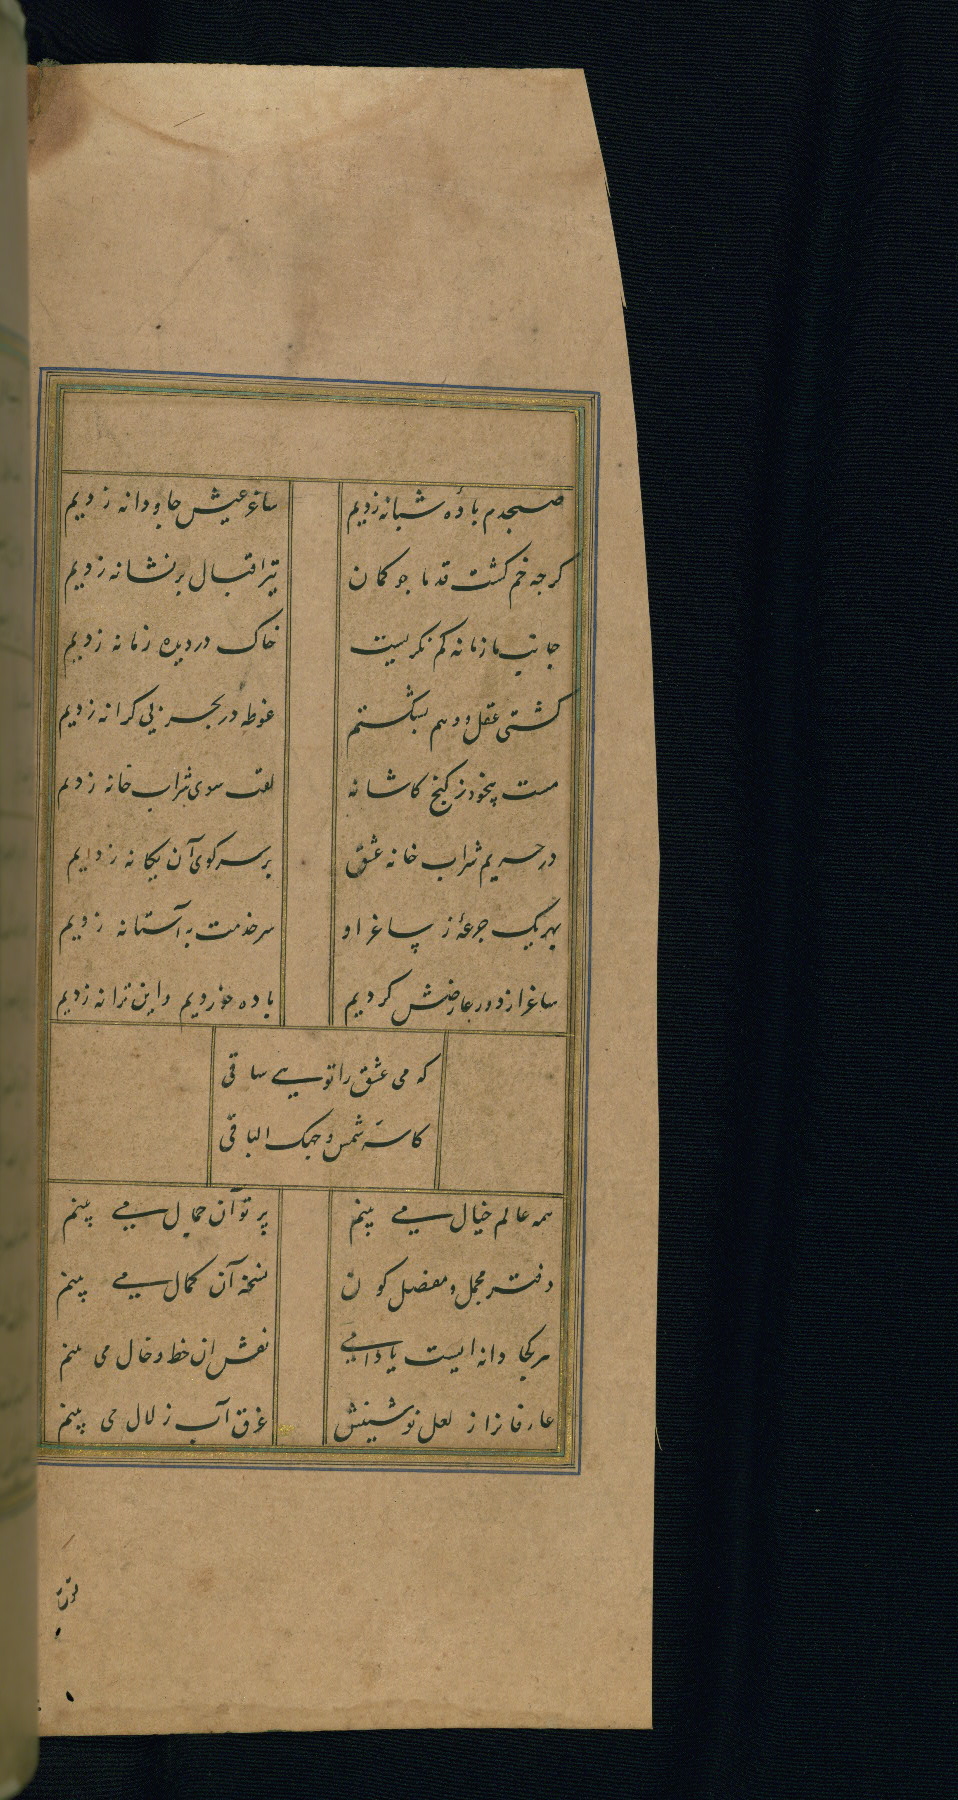 صبحدم بادهٔ شبانه زدیم ساغر عیش جاودانه زدیم
کرجه خم کشت قد ما جو کمان تیر اقبال بر نشانه زدیم
جانب ما زمانه کم نکریست خاک در دیده زمانه زدیم
کشتی عقل و وهم بشکستم غوطه در بحر بی کرانه زدیم
مست بیخود ز کنج کاشانه سوی شراب خانه زدیم
در حریم شراب خانه عشق بر سر کوی آن یکانه زدیم
بهر یک جرعهٔ ز ساغر او سر خدمت بر آستانه زدیم
ساغر از دور عارضش کردیم باده خوردیم واین ترانه زدیم
که می عشق را تویی ساقی
کاسه شمس وجهک الباقی
همه عالم خیال می بینم پرتو آن جمال می بینم
دفتر مجمل و مفصل کون نسخه آن کمال می بینم
هر کجا دانه ایست یا دامی نقش ان خط وخال می بینم
عارفانرا ز لعل نوشینش غرق آب زلال می بینم